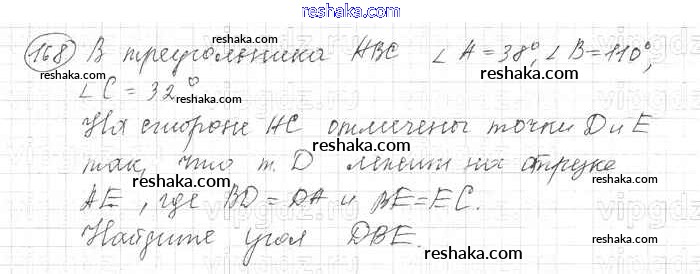 reshaka.com
168) В треугольника ABC ∠A=38°, ∠B=110°,
reshaka.com
∠C=32°
reshaka.com
На стороне AC отмечены точки D и E
reshaka.com
так, что т. D лежит на отрезке
reshaka.com
AE, где BD=DA и BE=EC.
reshaka.com
Найдите угол DBE.
reshaka.com